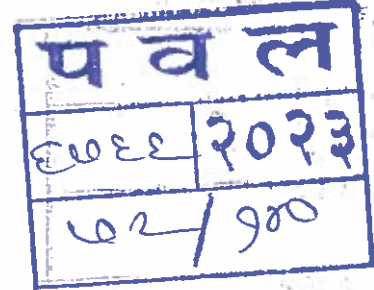 प व ल
६७६६ २०२३
७२/१४०